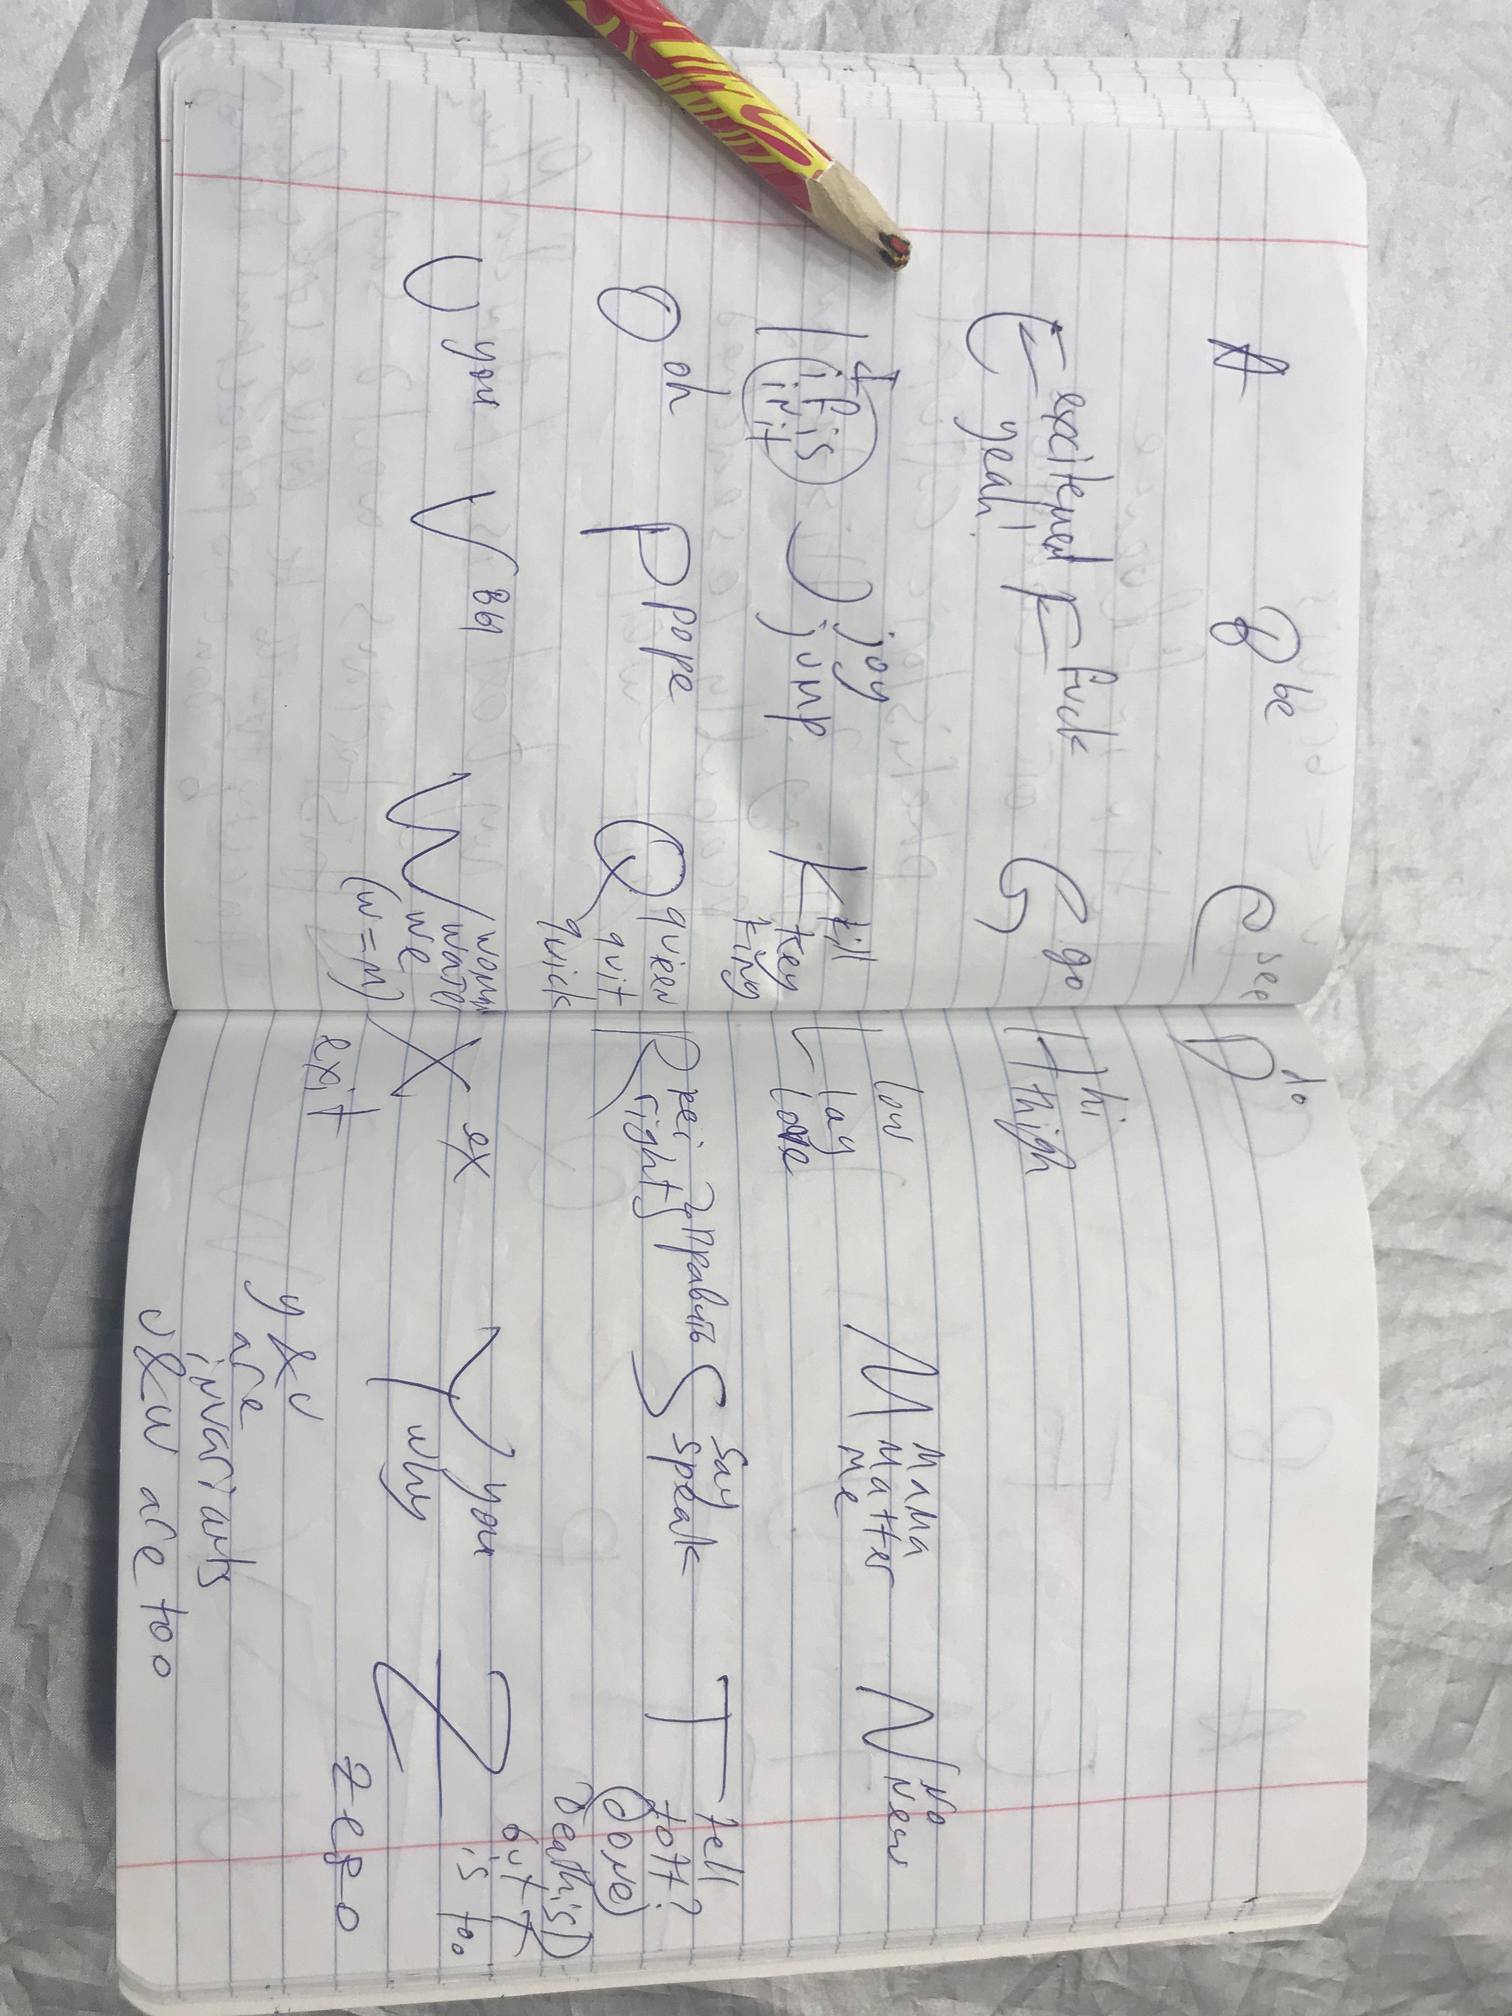 A B be C see D do
E excitement yeah! F fuck G go H hi high
I I if is in it J joy jump K kill key king L low lay love M mama matter me N no new
O oh P pope Q queen quit quick R править right S say speak T tell tott? (Done) Death is D but T is too
U you V вы W woman water we (w=m) X ex exit Y you why Z zero
y & u
are
invariants
v&w are too